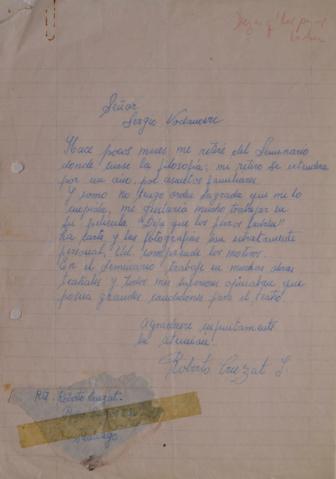 Deja q' los perros
ladren
Señor
Sergio Vodanovic
Hace pocos meses me retiré del Seminario
donde cursé la filosofía; mi retiro se extenderá
por un año, por asuntos familiares.
Y como no tengo orden sagrada que me lo
impida, me gustaría mucho trabajar en
su película "Deja que los perros ladren"
La carta y las fotografías son estrictamente
personal, Ud. comprende los motivos.
En el Seminario trabajé en muchas obras
teatrales y todos mis superiores opinaban que
poseía grandes condiciones para el teatro.
Agradecere infinitamente
su atención.
Roberto Cruzat L.
Rte. Roberto Cruzat.
Santiago